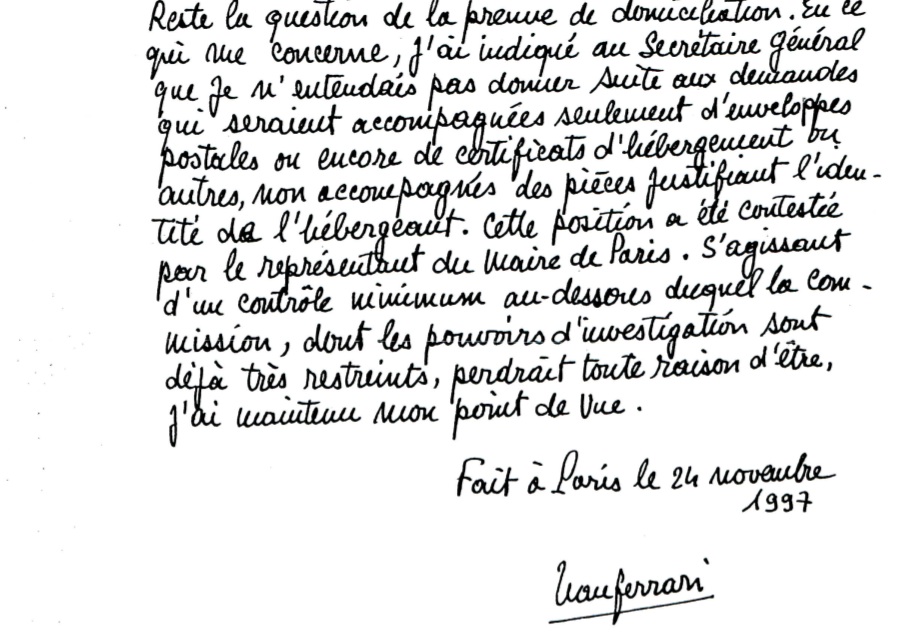 Reste la question de la preuve de domiciliation. En ce
qui me concerne, j'ai indiqué au Secrétaire Général
que je n'entendais pas donner suite aux demandes
qui seraient accompagnées seulement d'enveloppes
postales ou encore de certificats d'hébergement ou
autres, non accompagnés des pièces justifiant l'iden-
tité de l'hébergeant. Cette position a été contestée
par le représentant du Maire de Paris. S'agissant
d'un contrôle minimum au-dessous duquel la com-
mission, dont les pouvoirs d'investigation sont
déjà très restreints, perdrait toute raison d'être,
j'ai maintenu mon point de vue.
Fait à Paris le 24 novembre
1997